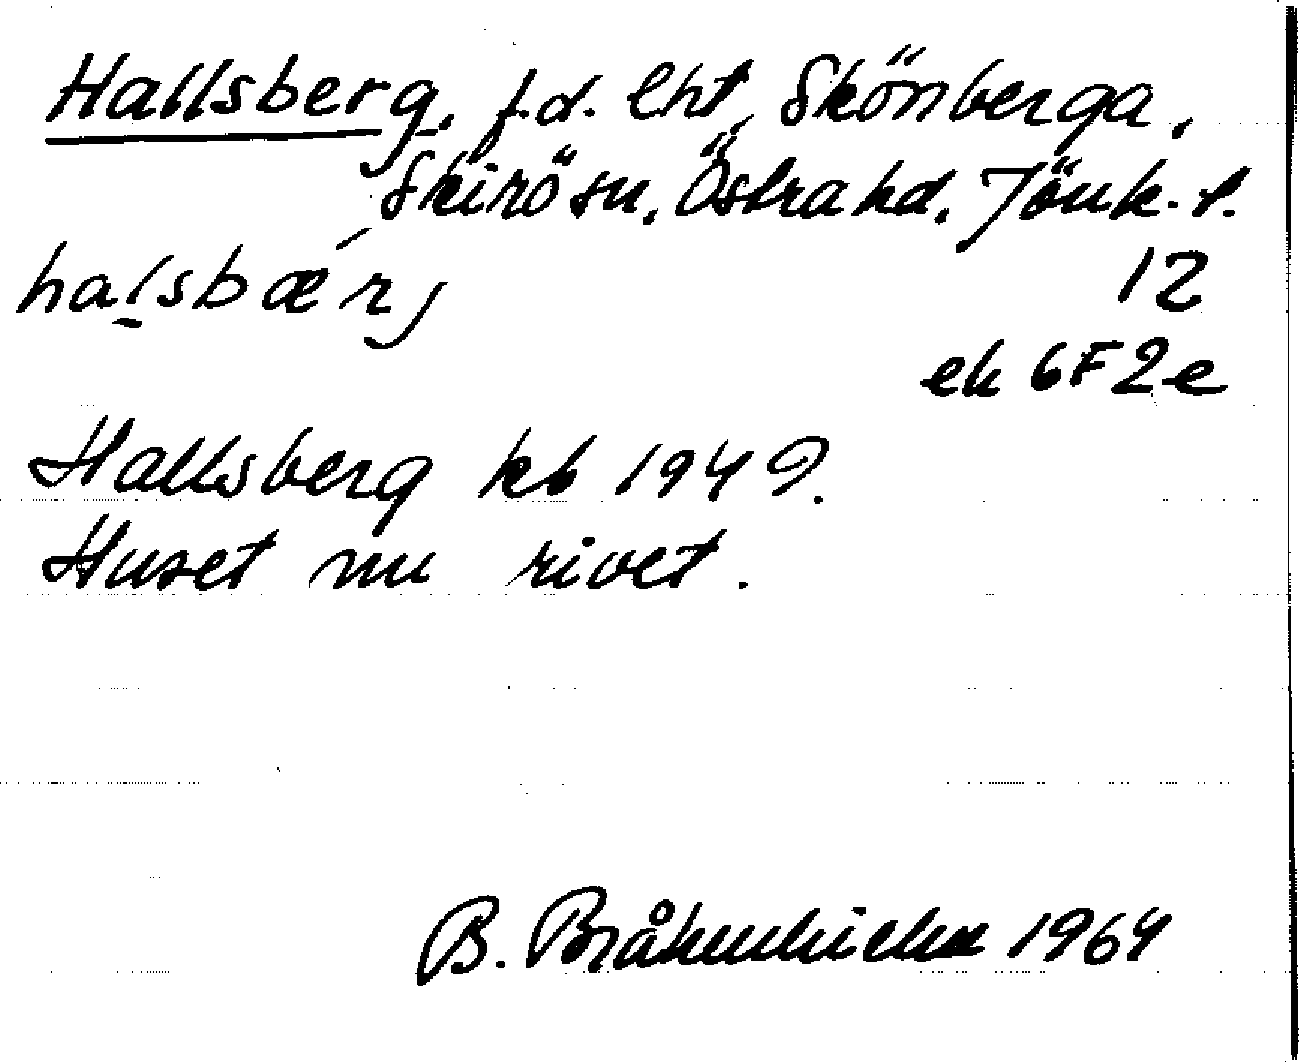 Hallsberg, f.d. lht, Skönberga,
Skirö sn, Östra hd, Jönk. l.
halsbærj
12
ek 6F2e
Hallsberg kb 1949.
Huset nu rivet.
B. 1964